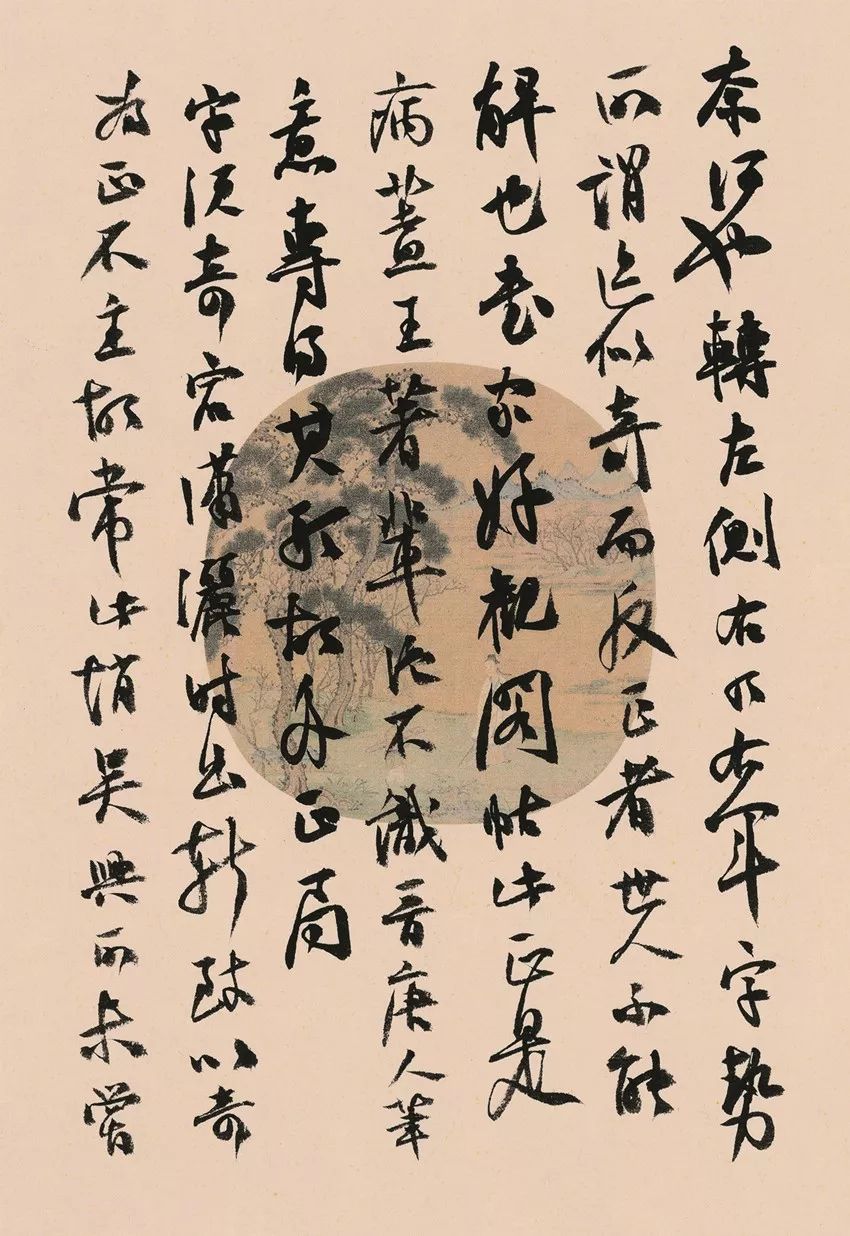 奈何也轉左側右乃右軍字勢
所謂迹似奇而反正者世人不能
解也書家好觀閣帖此正是
病蓋王著輩絕不識晉唐人筆
意專得其形故多正局
字須奇宕瀟灑時出新致以奇
為正不主故常此趙吳興所未嘗